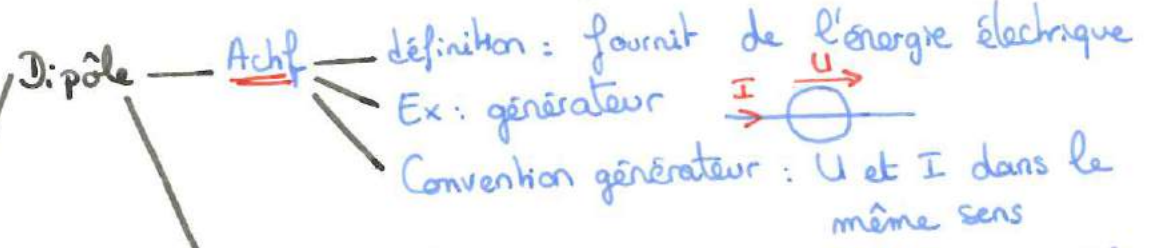 Dipôle — Actif — définition : fournit de l'énergie électrique
U
Ex : générateur I
Convention générateur : U et I dans le
même sens